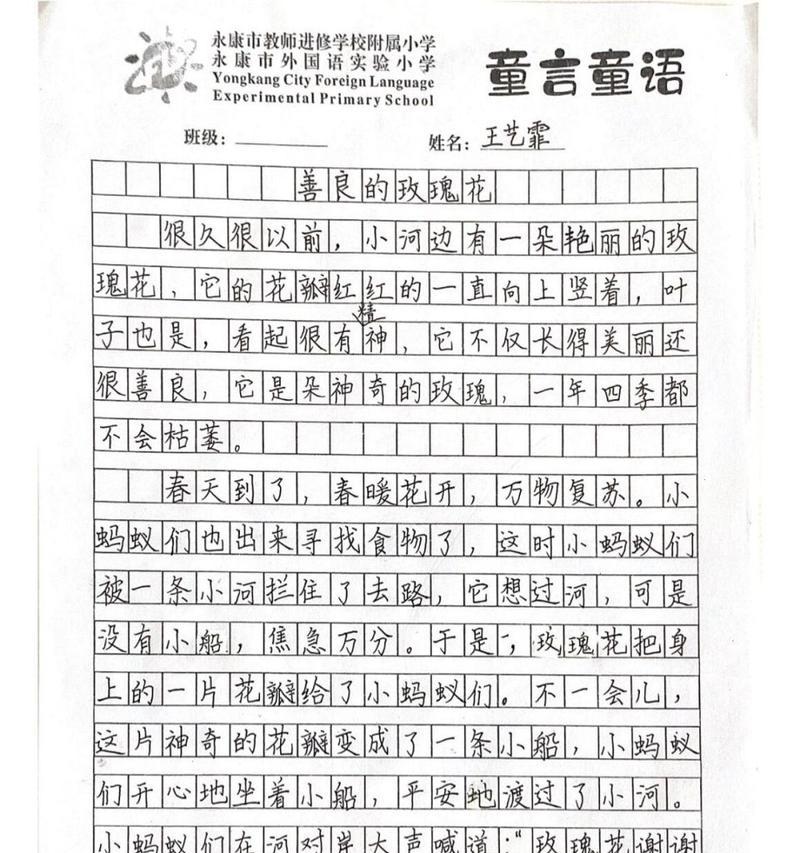 永康市教师进修学校附属小学
永康市外国语实验小学
Yongkang City Foreign Language
Experimental Primary School
童言童语
班级：
姓名：王艺霏
善良的玫瑰花
很久很以前，小河边有一朵艳丽的玫
瑰花，它的花瓣红红的一直向上竖着，叶
子也是，看起很有精神，它不仅长得美丽还
很善良，它是朵神奇的玫瑰，一年四季都
不会枯萎。
春天到了，春暖花开，万物复苏。小
蚂蚁们也出来寻找食物了，这时小蚂蚁们
被一条小河拦住了去路，它想过河，可是
没有小船，焦急万分。于是，玫瑰花把身
上的一片花瓣给了小蚂蚁们。不一会儿，
这片神奇的花瓣变成了一条小船，小蚂蚁
们开心地坐着小船，平安地渡过了小河。
小蚂蚁们在河对岸大声喊道：“玫瑰花谢谢